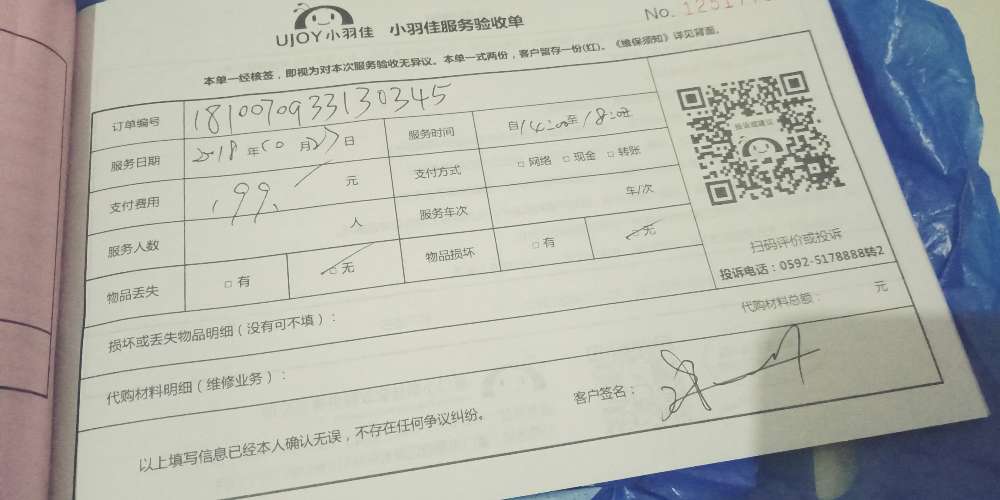 UJOY小羽佳 小羽佳服务验收单
No. 12517
本单一经核签，即视为对本次服务验收无异议。本单一式两份，客户暂存一份(红)。《维保须知》详见背面。
订单编号 181007093313 0345
服务日期 2018年10月27日 服务时间 自14:00至18:00
支付费用 199、元 支付方式 □网络 □现金 □转账
服务人数 人 服务车次 车/次
物品丢失 □有 □无 物品损坏 □有 □无
投诉或建议
扫码评价或投诉
投诉电话：0592-5178888转2
损坏或丢失物品明细（没有可不填）：
代购材料明细（维修业务）： 代购材料总额： 元
以上填写信息已经本人确认无误，不存在任何争议纠纷。 客户签名：